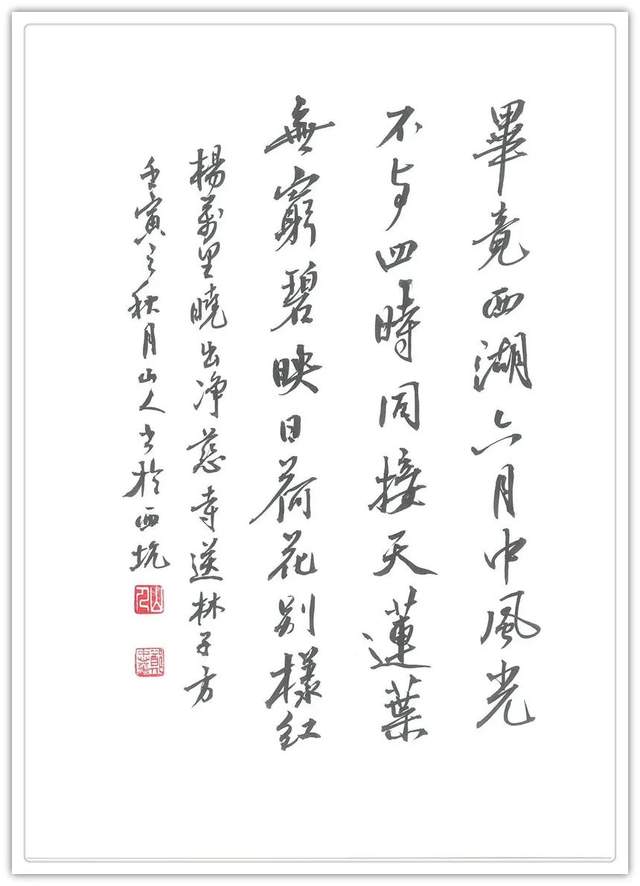 畢竟西湖六月中風光
不与四時同接天蓮葉
無窮碧映日荷花別樣红
楊萬里曉出净慈寺送林子方
壬寅之秋月山人书於西坑